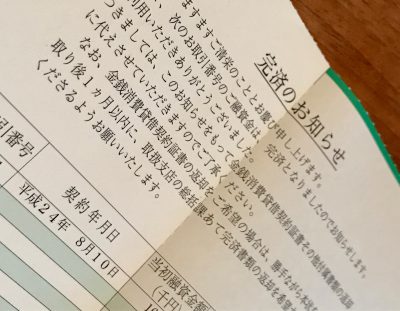 完済のお知らせ
ますますご清栄のこととお慶び申し上げます。
利用いただきありがとうございました。
、次のお取引番号のご融資金は、完済となりましたのでお知らせします。
つきましては、このお知らせをもって金銭消費貸借契約証書その他付属書類の返却
に代えさせていただきますのでご了承ください。
なお、金銭消費貸借契約証書の返却をご希望の場合は、勝手ながら本状
取り後1カ月以内に、取扱支店の総括課あて完済書類の返却を希望
くださるようお願いいたします。
引番号
契約年月日
当初融資金額
(千円)
平成24年 8月10日